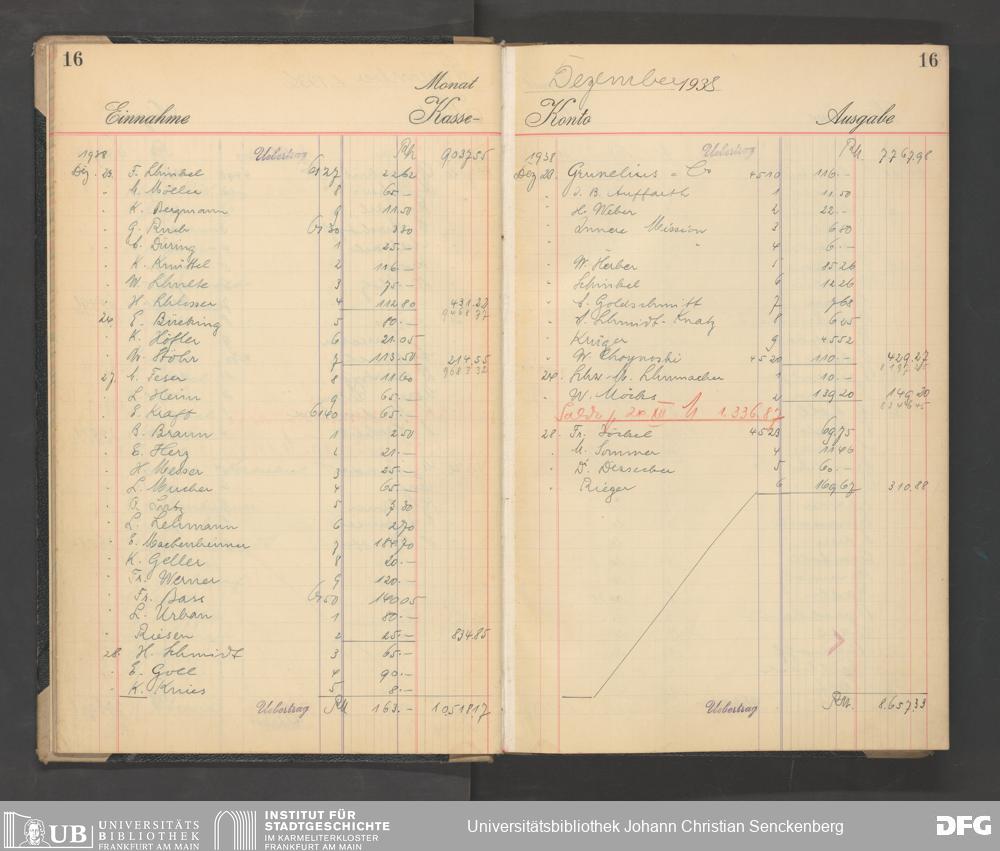 16
Monat
Einnahme Kasse-
1938 Uebertrag RM 9037.55
Dez. 23. F. Schinkel 6127 22.62
" A. Möller 8 65.—
" K. Bergmann 9 11.50
" G. Ruch 6130 3.30
" C. Düring 1 25.—
" K. Knüttel 2 116.—
" W. Schulte 3 75.—
" H. Schlosser 4 112.80 431.22
9468.77
24. E. Bücking 5 80.—
" K. Höfler 6 21.05
" W. Stöhr 7 113.50 214.55
9683.32
27. A. Feser 8 11.60
" L. Heim 9 65.—
" E. Kraft 6140 65.—
" B. Braun 1 2.50
" E. Herz 2 21.—
" H. Messer 3 25.—
" L. Mucher 4 65.—
" 5 7.30
" L. Lehmann 6 2.70
" E. Machenheimer 7 184.70
" K. Geller 8 20.—
" Fr. Werner 9 120.—
" Fr. Bass 6150 140.05
" L. Urban 1 80.—
" Riesen 2 25.— 834.85
28. H. Schmidt 3 65.—
" E. Goll 4 90.—
" K. Knies 5 8.—
Uebertrag RM 163.— 10518.17
16
Dezember 1938
Konto Ausgabe
1938 Uebertrag RM. 7767.98
Dez. 23. Grunelius & Co 4510 116.—
" J. B. Auffarth 1 11.50
" H. Weber 2 22.—
" Innere Mission 3 6.80
" " 4 6.—
" W. Herber 5 85.26
" Schinkel 6 12.26
" C. Goldschmidt 7 7.68
" A. Schmidt-Knatz 8 6.45
" Krüger 9 45.52
" W. Choynoski 4520 110.— 429.27
8197.25
24. Schw. M. Schumacher 1 10.—
" W. Möbs 2 139.20 149.20
8346.45
Saldo p. 24. XII M 1.336.87
28. Fr. Göckel 4523 69.75
" M. Sommer 4 11.46
" D. 5 60.—
" Rieger 6 169.67 310.88
Uebertrag RM. 8.657.33
UB UNIVERSITÄTS
BIBLIOTHEK
FRANKFURT AM MAIN
INSTITUT FÜR
STADTGESCHICHTE
IM KARMELITERKLOSTER
FRANKFURT AM MAIN
Universitätsbibliothek Johann Christian Senckenberg
DFG